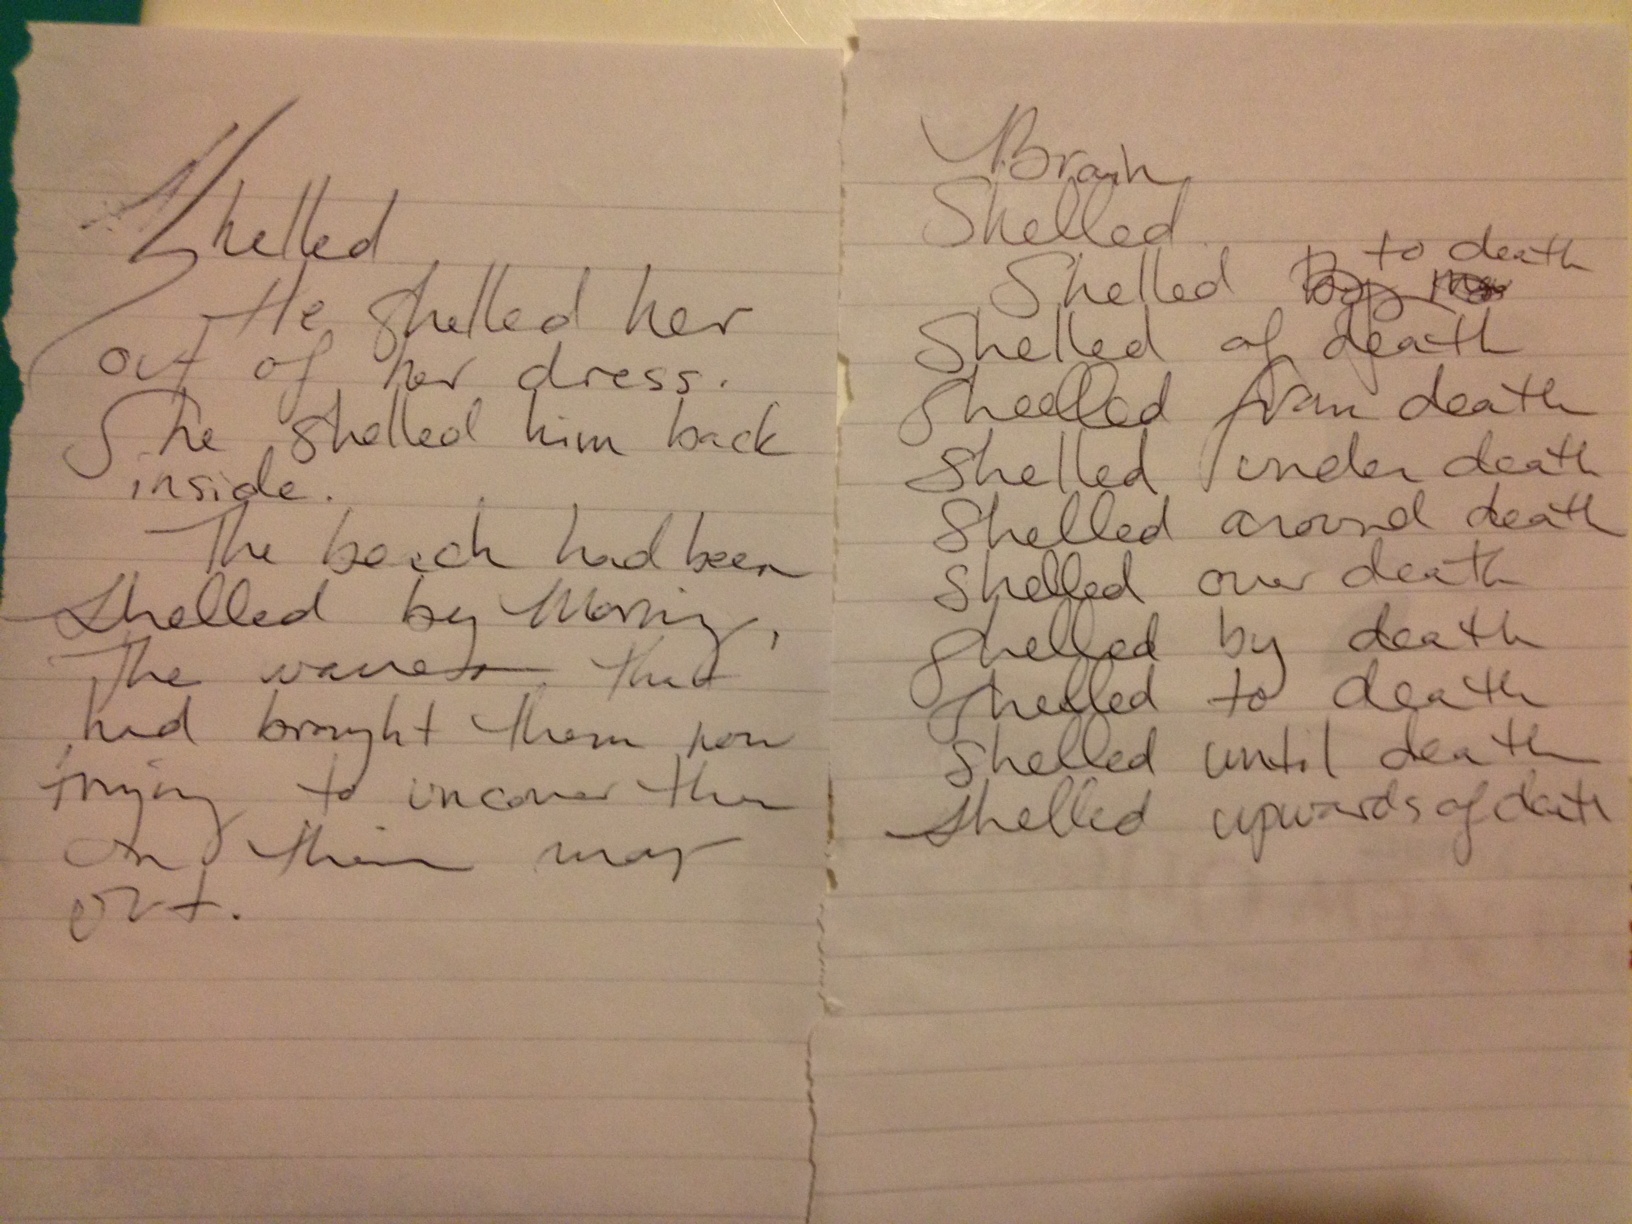 Shelled
He shelled her
out of her dress.
She shelled him back
inside.
The beach had been
shelled by morning,
The waves that
had brought them now
trying to uncover them
on their way
out.
Brain
Shelled
to death
Shelled
Shelled of death
Sheelled from death
Shelled under death
Shelled around death
Shelled over death
Shelled by death
Shelled to death
Shelled until death
Shelled upwards of death